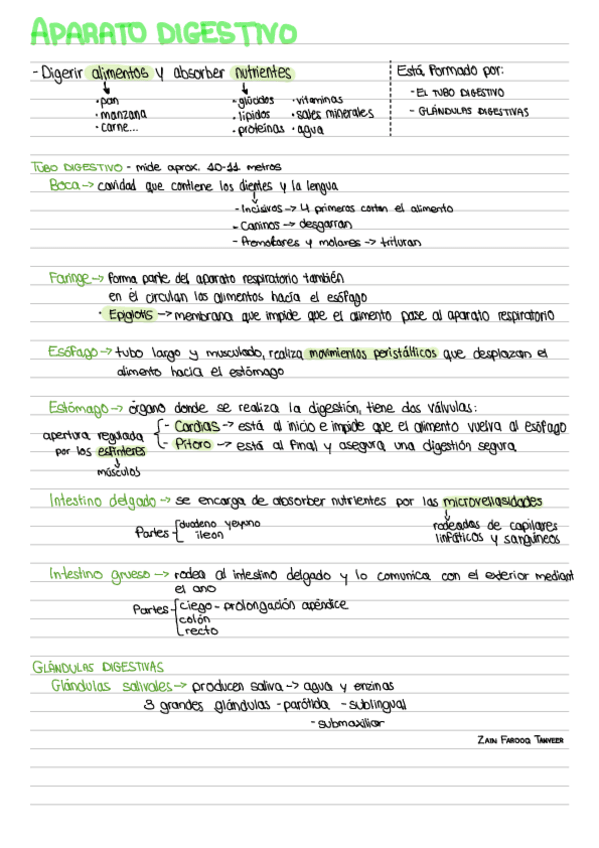 APARATO DIGESTIVO
- Digerir alimentos y absorber nutrientes
· pan
· manzana
· carne...
- glúcidos · vitaminas
· lípidos · sales minerales
· proteínas · agua
Está formado por:
- EL TUBO DIGESTIVO
- GLÁNDULAS DIGESTIVAS
TUBO DIGESTIVO - mide aprox. 10-11 metros
Boca -> cavidad que contiene los dientes y la lengua
- Incisivos -> 4 primeros cortan el alimento
- Caninos -> desgarran
- Premolares y molares -> trituran
Faringe -> forma parte del aparato respiratorio también
en él circulan los alimentos hacia el esófago
· Epiglotis -> membrana que impide que el alimento pase al aparato respiratorio
Esófago -> tubo largo y musculado, realiza movimientos peristálticos que desplazan el
alimento hacia el estómago
Estómago -> órgano donde se realiza la digestión, tiene dos válvulas:
apertura regulada
por los esfínteres
músculos
- Cardias -> está al inicio e impide que el alimento vuelva al esófago
- Píloro -> está al final y asegura una digestión segura
Intestino delgado -> se encarga de absorber nutrientes por las microvellosidades
Partes - duodeno yeyuno
íleon
rodeadas de capilares
linfáticos y sanguíneos
Intestino grueso -> rodea al intestino delgado y lo comunica con el exterior mediant
el ano
Partes - ciego - prolongación apéndice
colón
recto
GLÁNDULAS DIGESTIVAS
Glándulas salivales -> producen saliva -> agua y enzinas
3 grandes glándulas - parótida - sublingual
- submaxiliar
ZAIN FAROOQ TANVEER